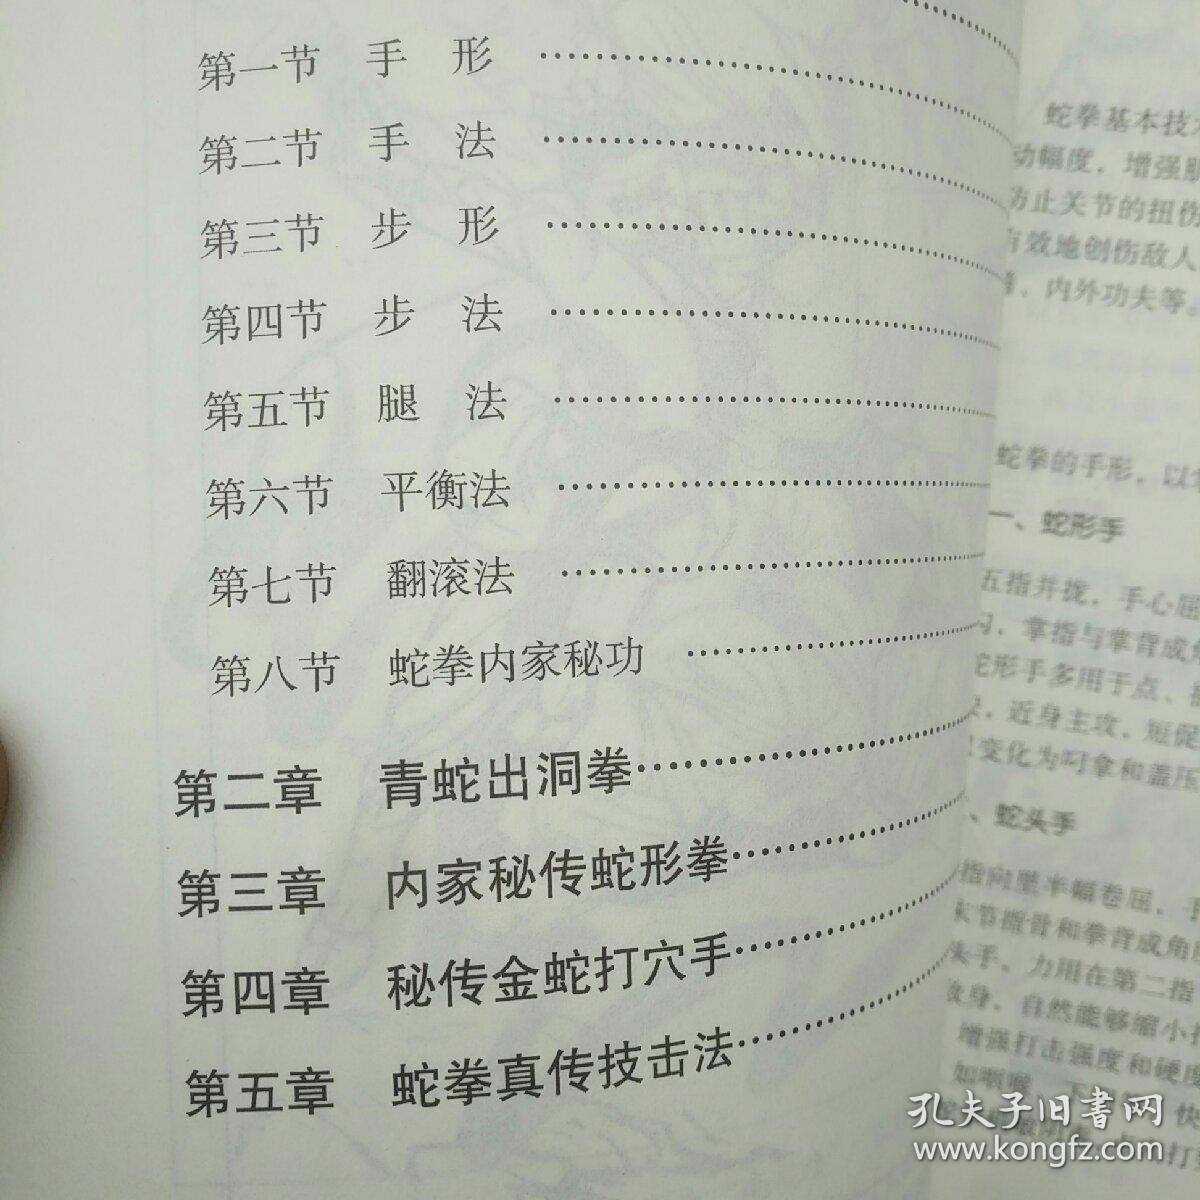 第一节 手 形
第二节 手 法
第三节 步 形
第四节 步 法
第五节 腿 法
第六节 平衡法
第七节 翻滚法
第八节 蛇拳内家秘功
第二章 青蛇出洞拳
第三章 内家秘传蛇形拳
第四章 秘传金蛇打穴手
第五章 蛇拳真传技击法
蛇拳基本技
动幅度，增强
防止关节的扭伤
有效地创伤敌人
、内外功夫等。
蛇拳的手形，以
一、蛇形手
五指并拢，手心屈
，掌指与掌背成角
蛇形手多用于点、
，近身主攻，短促
变化为叼拿和盖压
、蛇头手
指向里半幅卷屈，手
末节指骨和拳背成角
头手，力用在第二指
敌身，自然能够缩小
增强打击强度和硬度
如咽喉、
孔夫子旧书网
www.kongfz.com